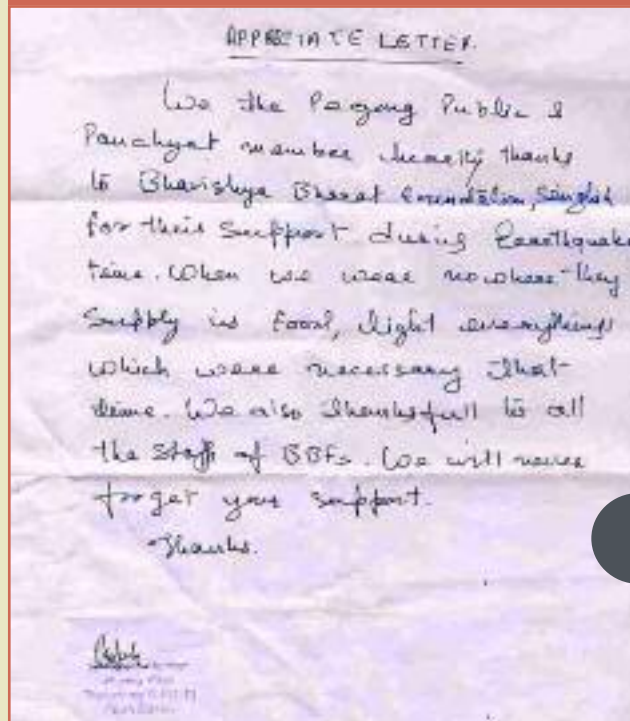 APPRECIATE LETTER.
We the Pegong Public &
Panchyat member heartly thanks
to Bhavishya Bharat Foundation,
for their Support during Earthquake
time. When we were nowhere they
Supply us food, light everythings
which were necessary that
time. We also thanksfull to all
the Staff of BBFs. We will never
forget your support.
Thanks.